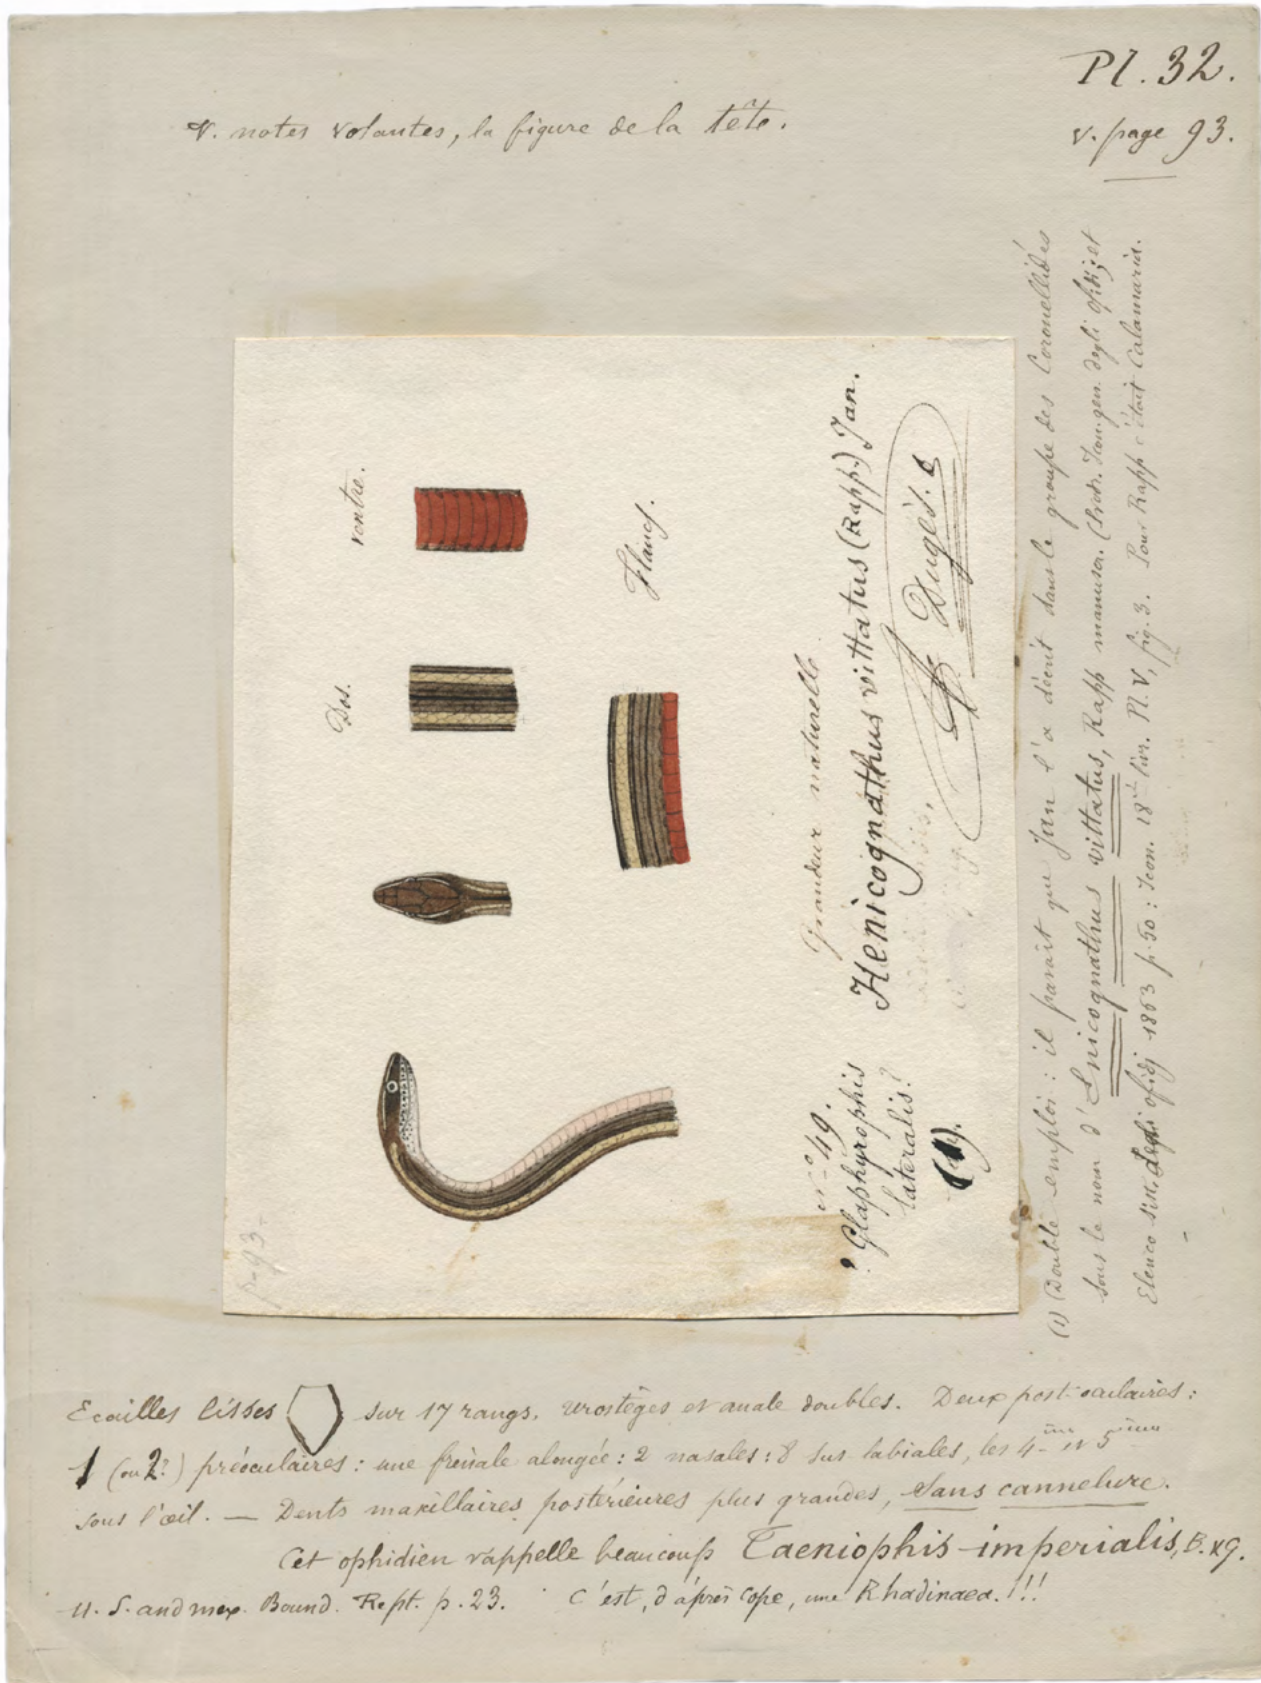 Pl. 32.
V. notes volantes, la figure de la tête.
v. page 93.
ventre.
Dos.
Flancs.
Grandeur naturelle
Henicognathus vittatus (Rapp.) Jan.
A. Dugès.
N.º 49.
? Glaphyrophis
lateralis?
(1).
p. 93.
(1) Double emploi: il parait que Jan l'a décrit dans le groupe des Coronellidés
sous le nom d'Enicognathus vittatus, Rapp manuscr. (Prodr. Icon. gen. degli ofidj; et
Elenco sist. degli ofidj 1863 p. 50: Icon. 18 livr. Pl. V, fig. 3. Pour Rapp c'était Calamaria.
Ecailles lisses sur 17 rangs. urostèges et anale doubles. Deux post-oculaires:
1 (ou 2?) préoculaires: une frénale alongée: 2 nasales: 8 sus labiales, les 4ième et 5ième
sous l'œil. — Dents maxillaires postérieures plus grandes, sans cannelure.
Cet ophidien rappelle beaucoup Taeniophis imperialis, B. &g.
U. S. and mex. Bound. Rept. p. 23. C'est, d'après Cope, une Rhadinaea.!!!